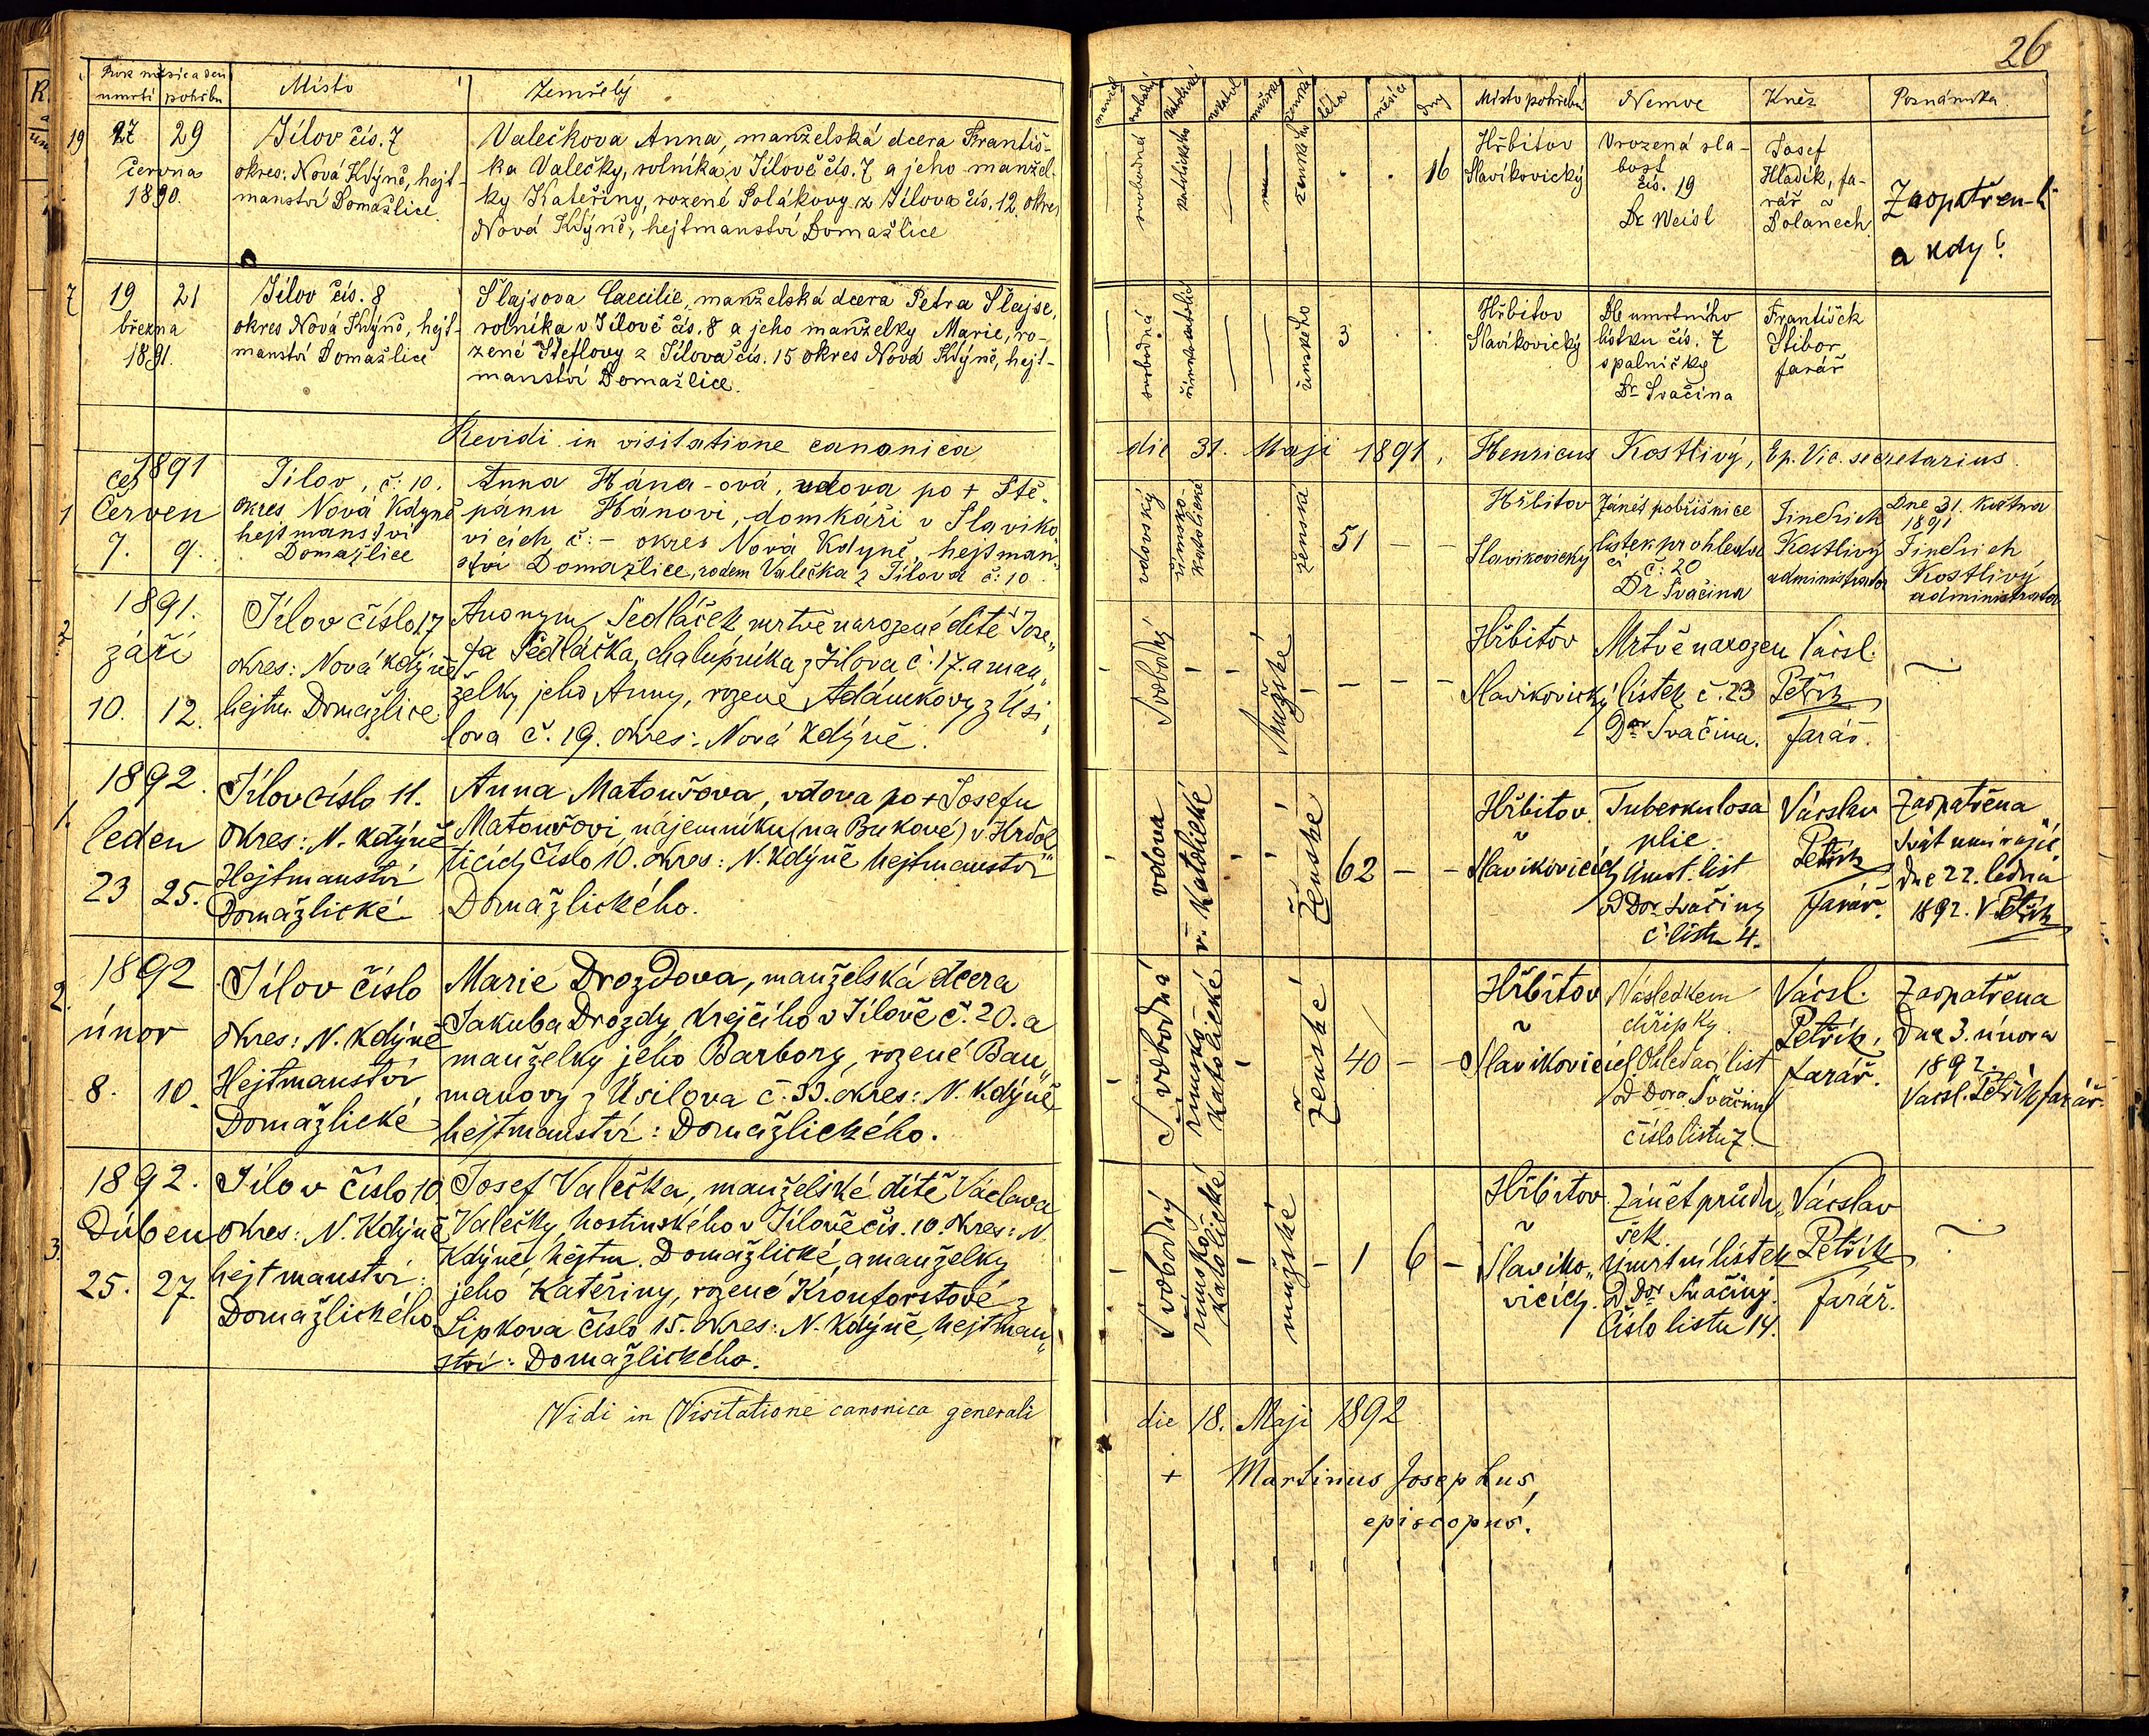 26
Rok měsíc a den
úmrtí pohřbu
Místo
Zemřelý
manžel.
svobodný
katolické
nekatol.
mužské
ženské
léta
měsíce
dny
Místo pohřební
Nemoc
Kněz
Poznámka
19
27 29
června
1890.
Jílov čís. 7
okres: Nová Kdýně, hejt-
manství Domažlice.
Valečkova Anna, manželská dcera Františ-
ka Valečky, rolníka v Jílově čís. 7 a jeho manžel-
ky Kateřiny, rozené Polákovy z Jílova čís. 12. okres
Nová Kdýně, hejtmanství Domažlice
svobodná
katolického
ženského
16
Hřbitov
Slavíkovický
Vrozená sla-
bost
čís. 19
Dr. Weisl
Josef
Hladík, fa-
rář v
Dolanech.
Zaopatřen-li
a kdy?
7
19 21
března
1891.
Jílov čís. 8
okres Nová Kdýně, hejt-
manství Domažlice
Šlajsova Caecilie, manželská dcera Petra Šlajse,
rolníka v Jílově čís. 8 a jeho manželky Marie, ro-
zené Šteflovy z Jílova čís. 15 okres Nová Kdýně, hejt-
manství Domažlice.
svobodná
ženského
3
Hřbitov
Slavíkovický
Dle úmrtního
lístku čís. 7
spalničky
Dr. Svačina
František
Stibor
farář
Revidi in visitatione canonica
die 31. Maji 1891, Henricus Kostlivý, Ep. Vic. secretarius.
1
1891
Červen
7. 9.
Jílov, č: 10.
okres Nová Kdyně
hejtmanství
Domažlice
Anna Hána-ová, vdova po + Ště-
pánu Hánovi, domkáři v Slaviko
vicích č: - okres Nová Kdyně, hejtman-
ství Domažlice, rodem Valečka z Jílova č: 10.
vdovský
římsko-
katolické
ženská
51 - -
Hřbitov
Slavikovický
Zánět pobřišnice
lístek prohledací
č: 20
Dr Svačina
Jindřich
Kostlivý
administrator
Dne 31. května
1891
Jindřich
Kostlivý
administrator
2.
1891.
září
10. 12.
Jílov číslo 17
okres: Nová Kdýně
hejtm. Domažlice
Anonym Sedláček mrtvě narozené dítě Jose„
fa Sedláčka, chalupníka z Jílova č. 17. a man„
želky jeho Anny, rozené Adámkovy z Úsi„
lova č. 19. okres: Nová Kdýně.
Svobodný
Mužské
- - -
Hřbitov
Slavikovický
Mrtvě narozen
lístek č. 23
Dor Svačina.
Vácsl.
Petřík
farář.
1.
1892.
leden
23 25.
Jílov číslo 11.
Okres: N. Kdýně
Hejtmanství
Domažlické
Anna Matoušova, vdova po + Josefu
Matoušovi, nájemníku (na Bukové) v Hrdol„
ticích číslo 10. Okres: N. Kdýně hejtmanství
Domažlického.
vdova
ř. Katolické
Ženské
62 - -
Hřbitov
v
Slavikovicích
Tuberkulosa
plic.
Úmrt. list
od Dor. Svačiny
č. listu 4.
Vácslav
Petřík
farář.
Zaopatřena
Svát. umírající
dne 22. ledna
1892. V. Petřík
2.
1892
únor
8. 10.
Jílov číslo
Okres: N. Kdýně
Hejtmanství
Domažlické
Marie Drozdova, manželská dcera
Jakuba Drozdy, krejčího v Jílově č. 20. a
manželky jeho Barbory, rozené Bau„
manovy z Úsilova č. 33. okres: N. Kdýně
hejtmanství: Domažlického.
Svobodná
římsko-
katolické
ženské
40 - -
Hřbitov
v
Slavikovicích
Následkem
chřipky.
Ohledací list
od Dora Svačiny
číslo listu 7.
Vácsl.
Petřík,
farář.
Zaopatřena
dne 3. února
1892.
Vácsl. Petřík farář.
3.
1892.
Duben
25. 27.
Jílov číslo 10
okres: N. Kdýně
hejtmanství:
Domažlického
Josef Valečka, manželské dítě Václava
Valečky, hostinského v Jílově čís. 10. Okres: N.
Kdýně, hejtm. Domažlické, a manželky
jeho Kateřiny, rozené Kronforstové z
Lipkova číslo 15. Okres: N. Kdýně, hejtman„
ství: Domažlického.
Svobodný
římsko-
katolické
mužské
- 1 6 -
Hřbitov
v
Slaviko„
vicích.
Zánět průdu„
šek.
Úmrtní lístek
od Dor Svačiny.
Číslo listu 14.
Vácslav
Petřík
farář.
Vidi in Visitatione canonica generali
die 18. Maji 1892
+ Martinus Josephus,
episcopus.